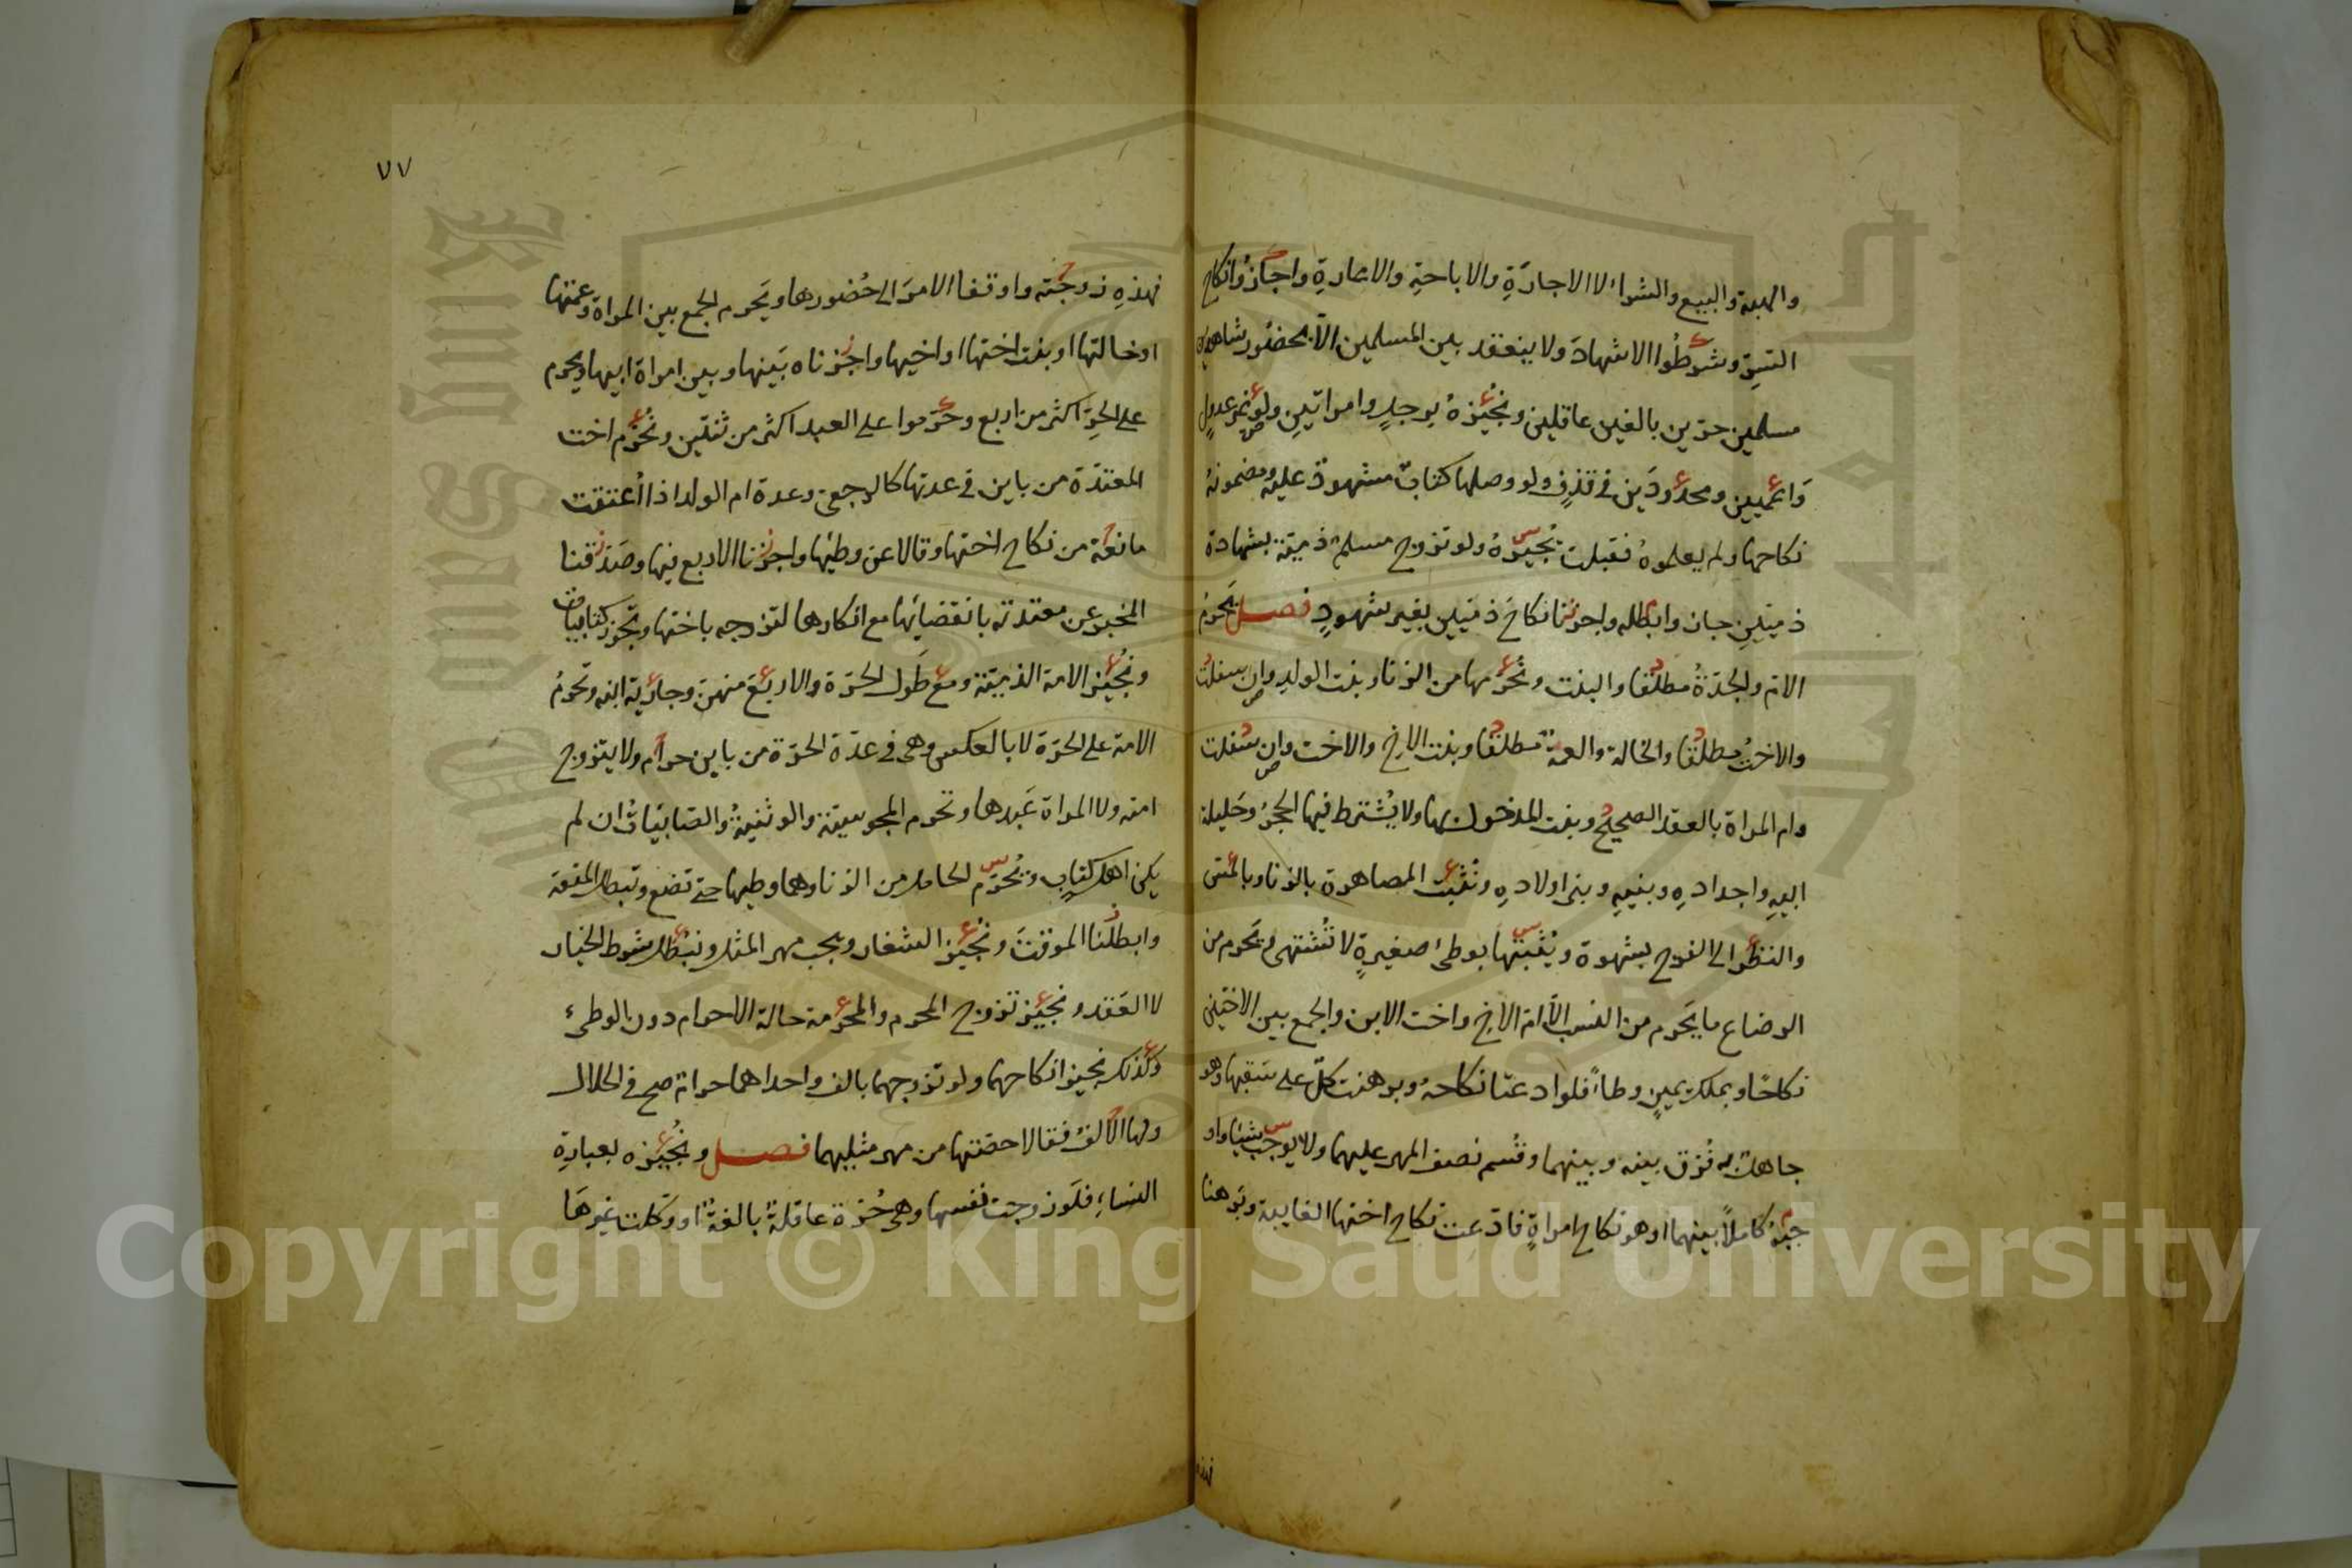 والهبة والبيع والشراء لا الاجارة والاباحة والاعارة واجازوا نكاح
السر وشرطوا الاشهاد ولا ينعقد بين المسلمين الا بحضور شاهدين
مسلمين حرين بالغين عاقلين ونجيزه برجل وامراتين ولو غير عدول
واعميين ومحدودين في قذف ولو وصلها كتاب مشهود عليه ومضمونه
نكاحها ولم يعلموه فقبلت يجيزه ولو تزوج مسلم ذمية بشهادة
ذميين جاز وابطله واجزنا نكاح ذميين بغير شهود فصل يحرم
الام والجدة مطلقا والبنت ونحرمها من الزنا وبنت الولد وان سفلت
والاخت مطلقا والخالة والعمة مطلقا وبنت الاخ والاخت وان سفلت
وام المراة بالعقد الصحيح وبنت المدخول بها ولا يشترط فيها الحجر وحليلة
ابيه واجداده وبنيه وبني اولاده ونثبت المصاهرة بالزنا وبالمس
والنظر الى الفرج بشهوة ويثبتها بوطئ صغيرة لا تشتهى ويحرم من
الرضاع ما يحرم من النسب الا ام الاخ واخت الابن والجمع بين الاختين
نكاحا وبملك يمين وطأ فلو ادعتا نكاحه وبرهنت كل على سبقها وهو
جاهل به فرق بينه وبينهما وقسم نصف المهر عليهما ولا يوجب شيئا واو
جبه كاملا بينهما او هو نكاح امراة فادعت نكاح اختها الغايبة وبرهنا
فهذه زوجته واوقفا الامر الى حضورها ويحرم الجمع بين المراة وعمتها
او خالتها او بنت اختها او اخيها واجزناه بينها وبين امراة ابيها ويحرم
على الحر اكثر من اربع وحرموا على العبد اكثر من ثنتين ونحرم اخت
المعتدة من باين في عدتها كالرجعي وعدة ام الولد اذا اعتقت
مانعة من نكاح اختها وقالا عن وطئها واجزنا الاربع فيها وصدقنا
المخبر عن معتدته بانقضائها مع انكارها لتزوجه باختها وتجوز كتابيات
ونجيز الامة الذمية ومع طول الحرة والاربع منهن وجارية ابنه وتحرم
الامة على الحرة لا بالعكس وهي في عدة الحرة من باين حرام ولا يتزوج
امته ولا المراة عبدها وتحرم المجوسية والوثنية والصابيات ان لم
يكن اهل كتاب ويحرم الحامل من الزنا وهما وطيها حتى تضع وتبطل المتعة
وابطلنا الموقت ونجيز الشغار ويجب مهر المثل ونبطل شرط الخيار
لا العقد ونجيز تزوج المحرم والمحرمة حالة الاحرام دون الوطئ
وكذلك نجيز انكاحها ولو تزوجهما بالف واحداهما حرام صح في الحلال
ولها الالف فقالا حصتها من مهر مثليهما فصل ونجيزه بعبارة
النساء فلو زوجت نفسها وهي حرة عاقلة بالغة او وكلت غيرها
٧٧